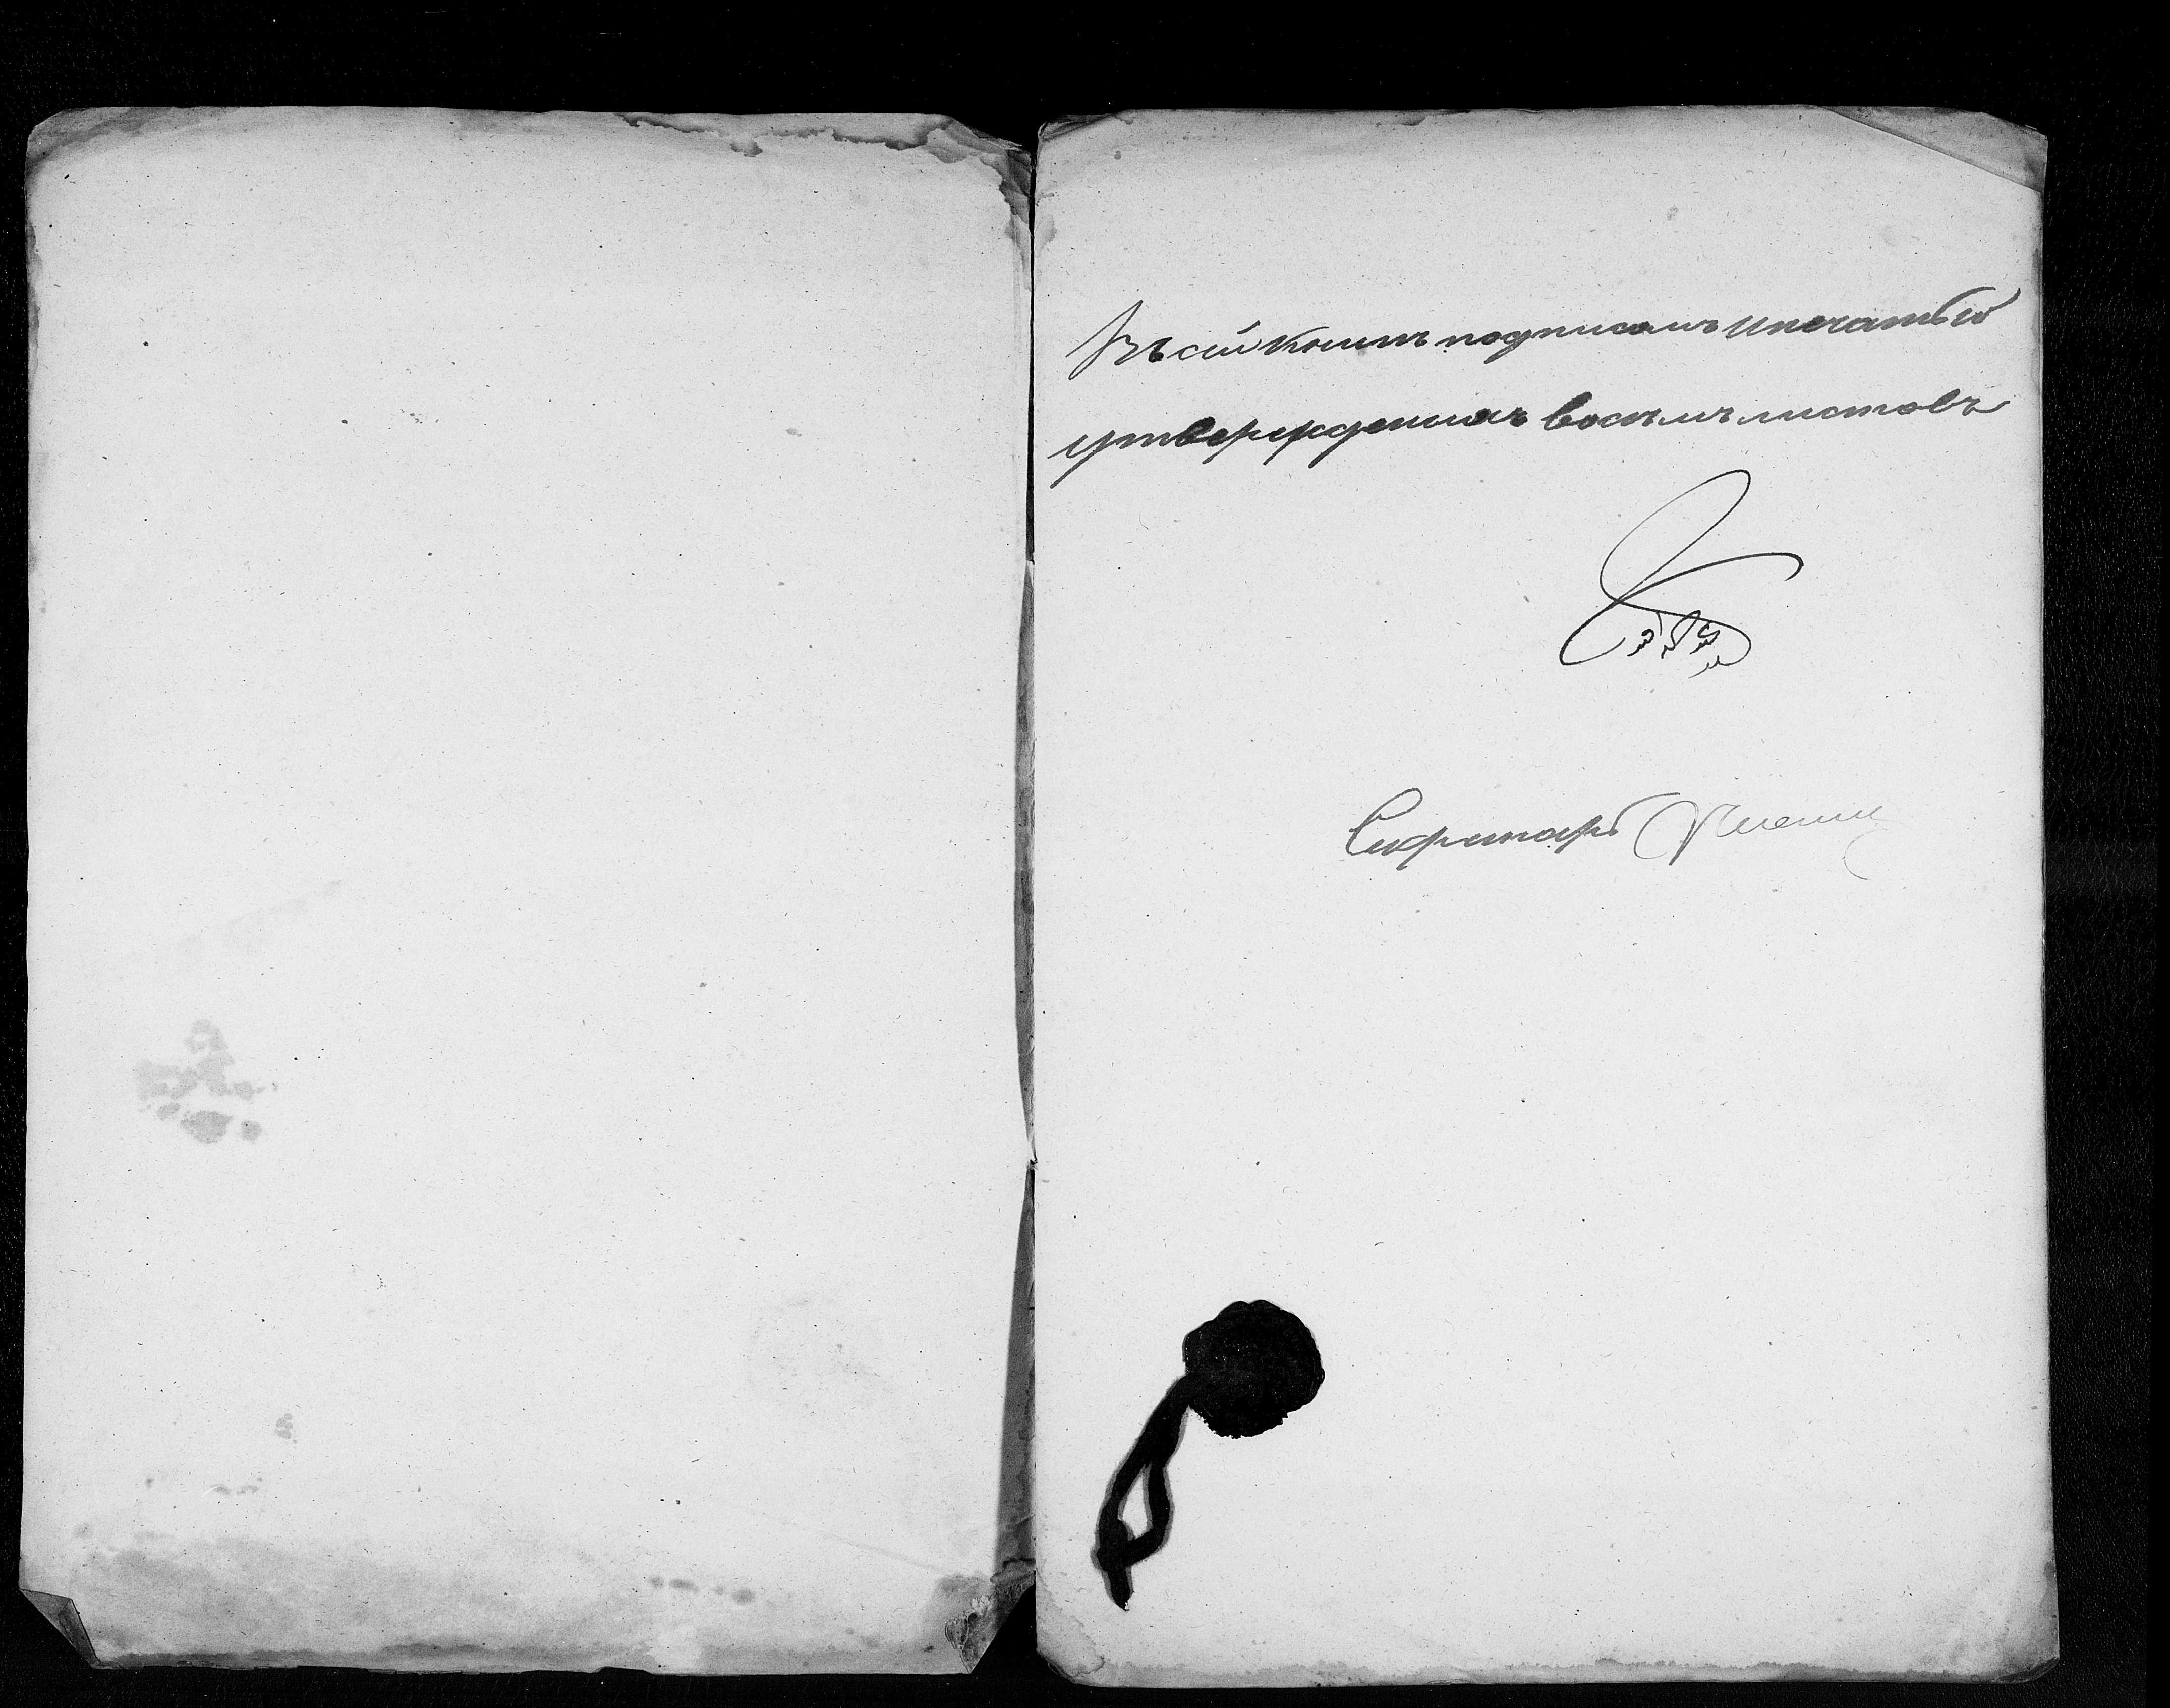 Въ сей книгѣ подписомъ и печатью
утвержденнахъ восѣмъ листовъ
Секретарь